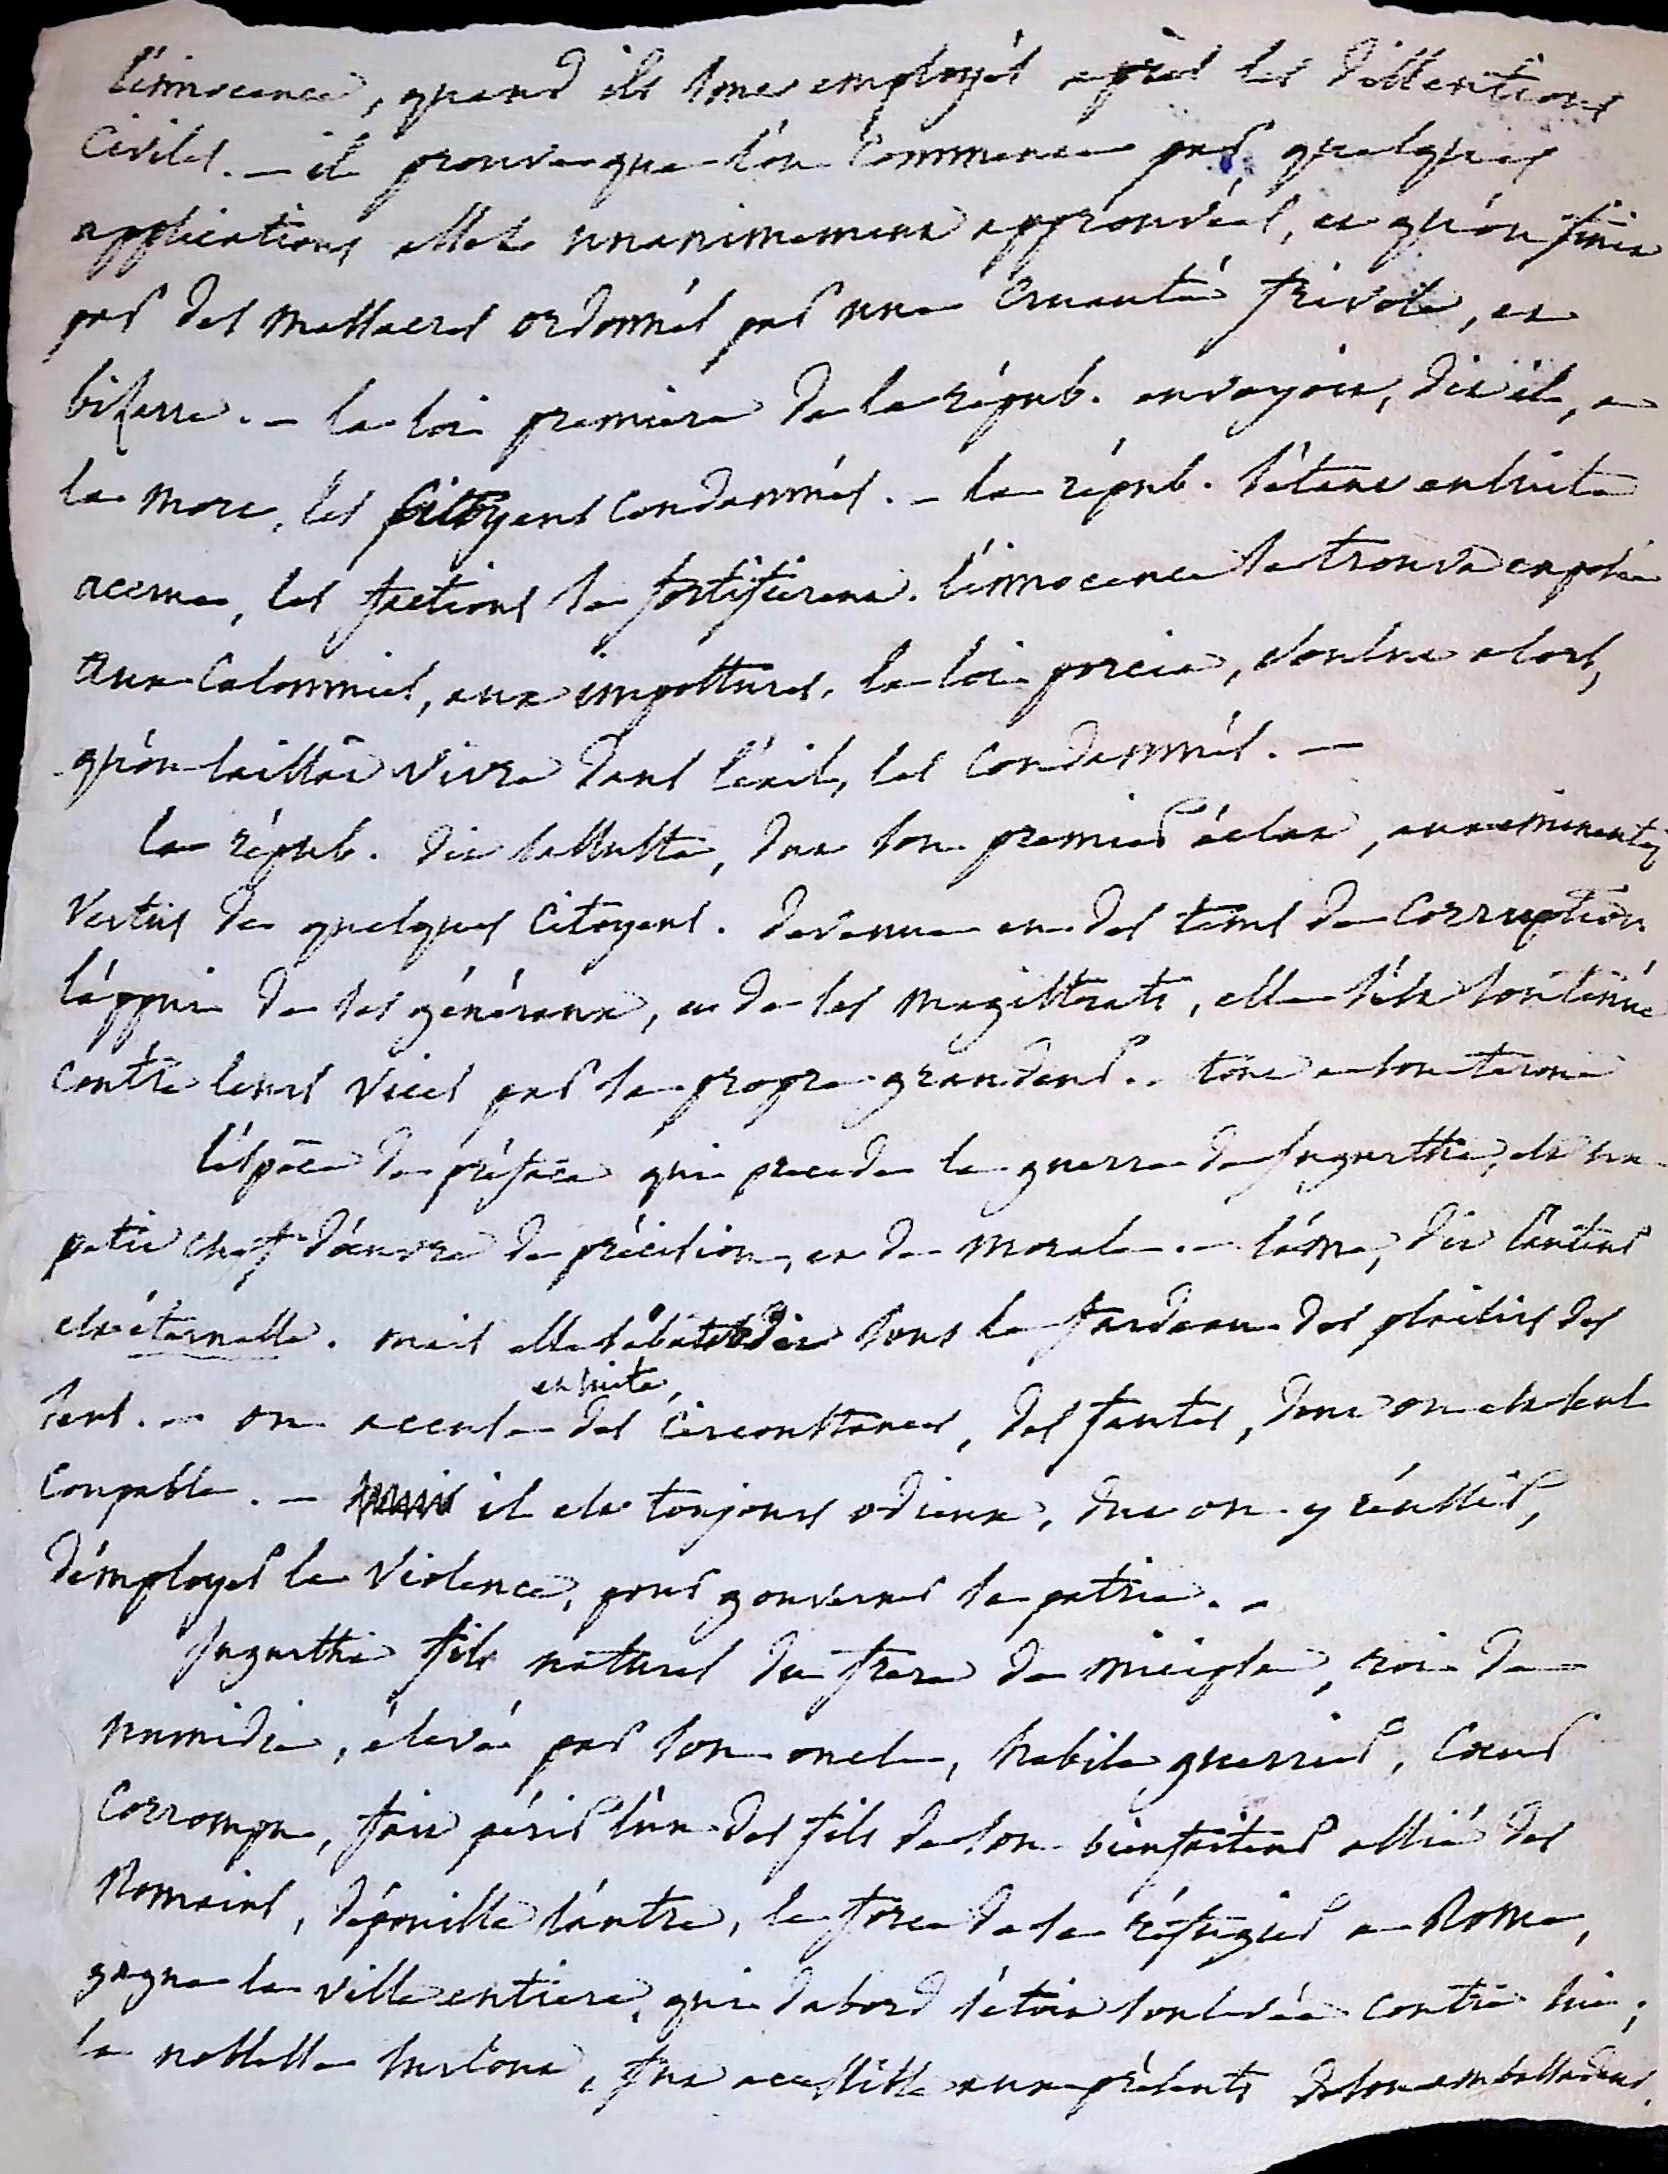 l'innocence, quand ils sont employés après les dissentions
civiles. — il prouve que l'on commence par quelques
applications assez unanimement approuvées, et qu'on finit
par des massacres ordonnés par une cruauté frivole, et
bizarre. — la loi premiere de la répub. envoyoit, dit il, a
la mort, les citoyens condamnés. — la répub. s'étant ensuite
accrue, les factions se fortifierent. l'innocence se trouva exposée
aux calomnies, aux impostures, la loi porcia, voulut alors,
qu'on laissât vivre dans l'exil, les condamnés. —
la répub. dit salluste, dut son premier éclat, aux eminentes
vertus de quelques citoyens. devenue en des tems de corruption
l'appui de ses généraux, et de ses magistrats, elle s'est soutenue
contre leurs vices par sa propre grandeur. tout a son terme
l'éspèce de préface qui precede la guerre de Jugurtha, est un
petit chef d'oeuvre de précision, et de morale. — l'âme, dit l'auteur
est éternelle. mais elle s'abatardit sous le fardeau des plaisirs des
sens. — on accuse ensuite, des circonstances, des fautes, dont on est seul
coupable. — il est toujours odieux, dut on y réussir,
d'employer la violence, pour gouverner sa patrie. —
Jugurtha fils naturel du frere de micipsa, roi de
numidie, élevé par son oncle, habile guerrier, coeur
corrompu, fait périr l'un des fils de son bienfaiteur allié des
Romains, dépouille l'autre, le force de se réfugier a Rome,
gagne la ville entiere, qui d'abord s'étoit soulevée contre lui;
la noblesse surtout, fut accessible aux présents de son ambassadeur.